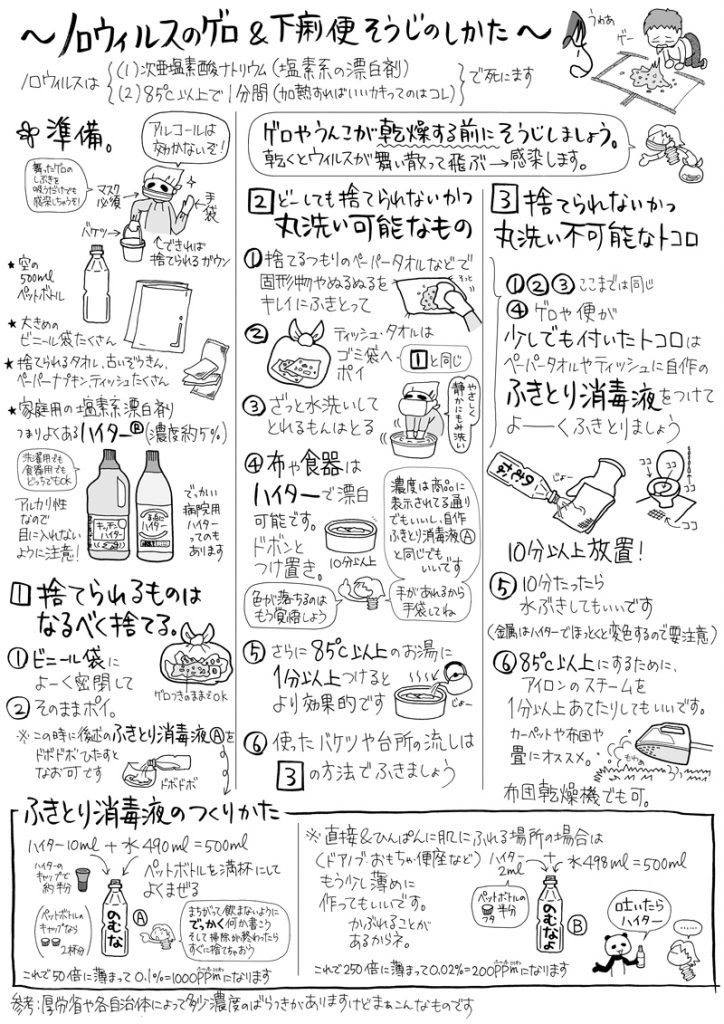 ～ノロウィルスのゲロ＆下痢便そうじのしかた～
うわぁ
ゲー
ノロウィルスは
(1)次亜塩素酸ナトリウム(塩素系の漂白剤)
(2)85℃以上で1分間(加熱すればいいカキってのはコレ)
で死にます
準備。
アルコールは
効かないぞ！
舞ったゲロの
しぶきを
吸うだけでも
感染しちゃうぞ！
マスク
必須
手袋
バケツ
できれば
捨てられるガウン
★空の
500ml
ペットボトル
★大きめの
ビニール袋たくさん
★捨てられるタオル、古いぞうきん、
ペーパーナプキン、ティッシュたくさん
★家庭用の塩素系漂白剤
つまりよくあるハイター®(濃度約5%)
洗濯用でも
食器用でも
どっちでもOK
アルカリ性
なので
目に入れない
ように注意！
キッチン
ハイター
でっかい
病院用
ハイター
ってのも
あります
ゲロやうんこが乾燥する前にそうじしましょう。
乾くとウィルスが舞い散って飛ぶ→感染します。
1 捨てられるものは
なるべく捨てる。
①ビニール袋に
よーく密閉して
②そのままポイ。
ゲロつきのままでOK
※この時に後述のふきとり消毒液Ⓐを
ドボドボひたすと
なお可です
ドボドボ
2 どーしても捨てられないかつ
丸洗い可能なもの
①捨てるつもりのペーパータオルなどで
固形物やぬるぬるを
キレイにふきとって
そっと
②ティッシュ・タオルは
ゴミ袋へ
ポイ
1と同じ
③ざっと水洗いして
とれるもんはとる
やさしく
静かにもみ洗い
④布や食器は
ハイターで漂白
可能です。
ドボンと
つけ置き。
10分以上
濃度は商品に
表示されてる通り
でもいいし、自作
ふきとり消毒液Ⓐ
と同じでも
いいです
色が落ちるのは
もう覚悟しよう
手があれるから
手袋してね
⑤さらに85℃以上のお湯に
1分以上つけると
より効果的です
じょー
⑥使ったバケツや台所の流しは
3の方法でふきましょう
3 捨てられないかつ
丸洗い不可能なトコロ
①②③ここまでは同じ
④ゲロや便が
少しでも付いたトコロは
ペーパータオルやティッシュに自作の
ふきとり消毒液をつけて
よーくふきとりましょう
のむなよ
じょー
ココ
ココ
ココ
ココ
ココ
10分以上放置！
⑤10分たったら
水ぶきしてもいいです
(金属はハイターでほっとくと変色するので要注意)
⑥85℃以上にするために、
アイロンのスチームを
1分以上あてたりしてもいいです。
カーペットや布団や
畳にオススメ。
布団乾燥機でも可。
ふきとり消毒液のつくりかた
ハイター10ml＋水490ml＝500ml
ハイターの
キャップで
約半分
ペットボトルを満杯にして
よくまぜる
(ペットボトルの
キャップなら
2杯分)
のむなよ
Ⓐ
まちがって飲まないように
でっかく何か書こう
そして掃除が終わったら
すぐに捨てちゃおう
これで50倍に薄まって0.1%＝1000ppmになります
※直接＆ひんぱんに肌にふれる場所の場合は
(ドアノブ・おもちゃ・便座など)
もう少し薄めに
作ってもいいです。
かぶれることが
あるからネ。
ハイター
2ml
＋水498ml＝500ml
ペットボトルの
フタ
半分
のむなよ
Ⓑ
吐いたら
ハイター
……
これで250倍に薄まって0.02%＝200ppmになります
参考：厚労省や各自治体によって多少濃度のばらつきがありますけどまぁこんなものです